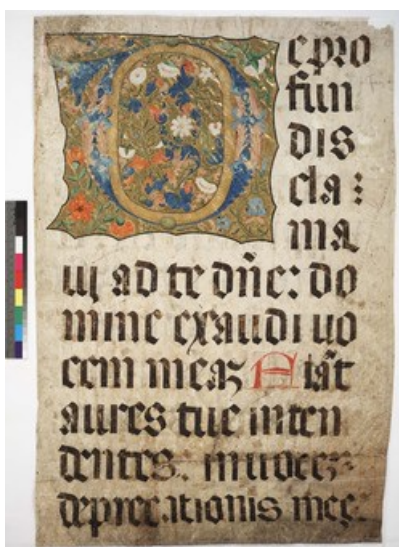 De pro
fun
dis
cla :
ma
ui ad te dñe: do
mine exaudi uo
cem meaʒ Fiãt
aures tue inten
dentes. in uoceʒ
deprecationis meę.